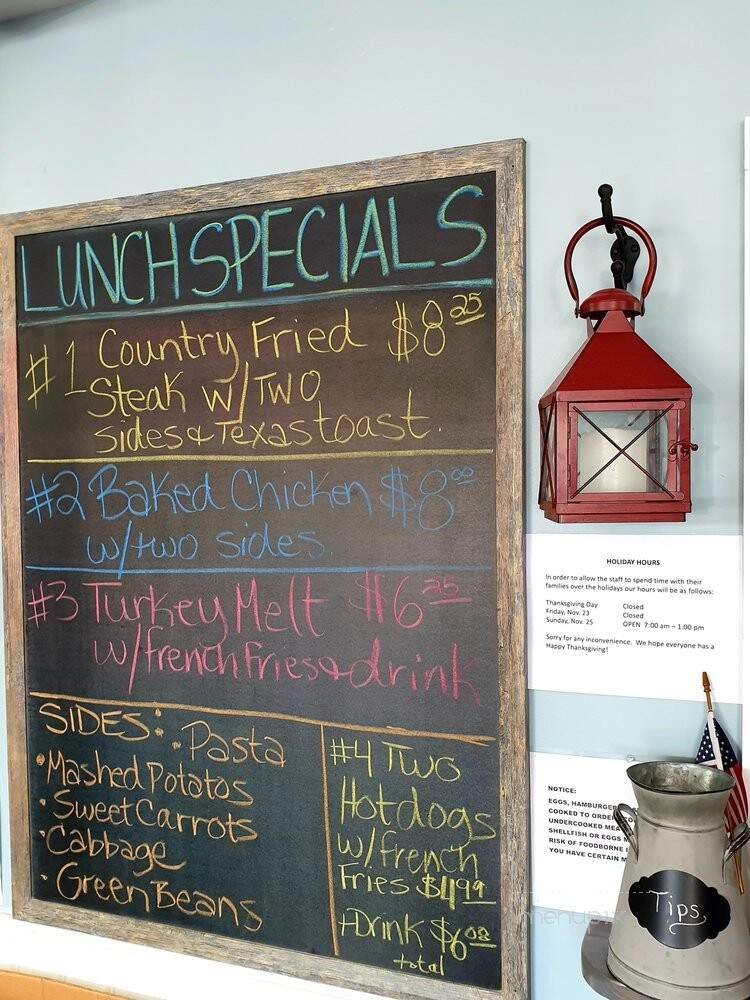 LUNCH SPECIALS
#1 Country Fried $8 25
Steak w/ TWO
sides & Texas toast.
#2 Baked Chicken $8 00
w/ two sides.
#3 Turkey Melt $6 25
w/ french Fries & drink
SIDES:
· Pasta
· Mashed Potatos
· Sweet Carrots
· Cabbage
· Green Beans
#4 Two
Hotdogs
w/ french
Fries $4 99
+Drink $6 08
total
HOLIDAY HOURS
In order to allow the staff to spend time with their
families over the holidays our hours will be as follows:
Thanksgiving Day Closed
Friday, Nov. 23 Closed
Sunday, Nov. 25 OPEN 7:00 am – 1:00 pm
Sorry for any inconvenience. We hope everyone has a
Happy Thanksgiving!
NOTICE:
EGGS, HAMBURGER
COOKED TO ORDER
UNDERCOOKED
SHELLFISH OR EGGS
RISK OF FOODBORNE
YOU HAVE CERTAIN
Tips